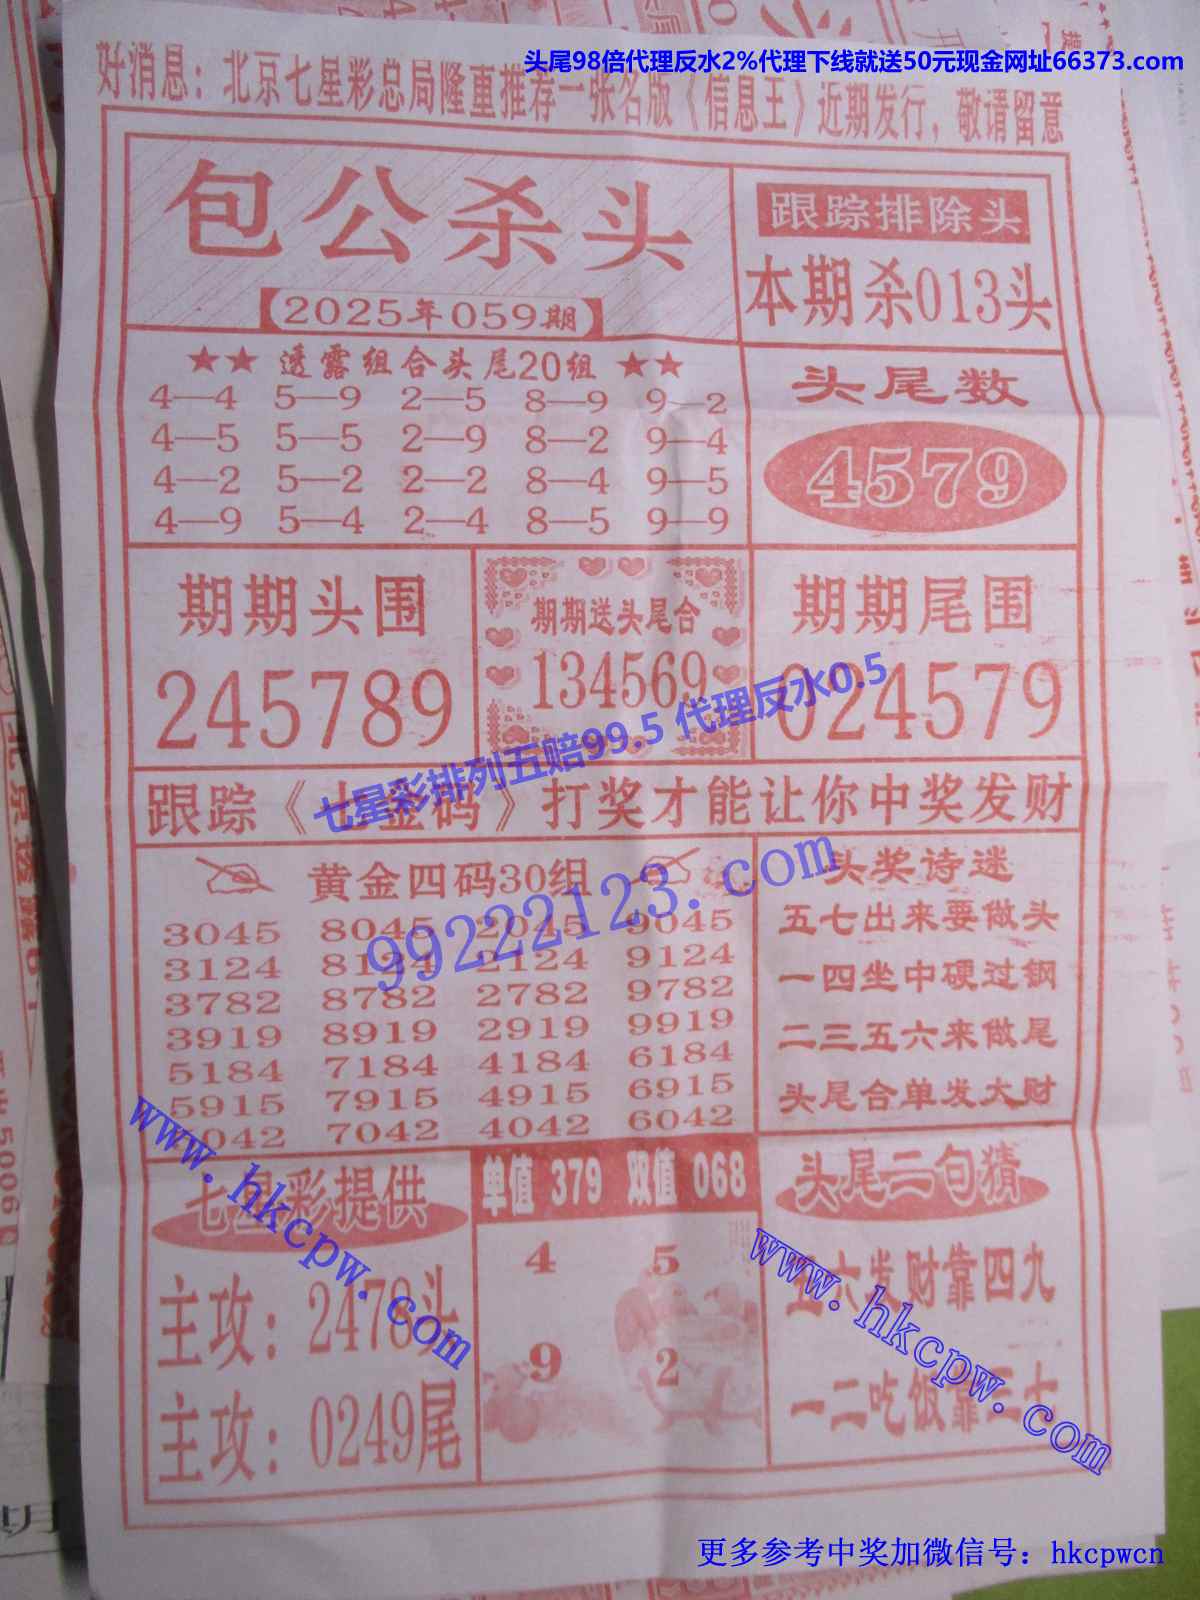 头尾98倍代理反水2%代理下线就送50元现金网址66373.com
好消息：北京七星彩总局隆重推荐一张名版《信息王》近期发行，敬请留意
包公杀头
【2025年059期】
跟踪排除头
本期杀013头
★★ 透露组合头尾20组 ★★
4—4 5—9 2—5 8—9 9—2
4—5 5—5 2—9 8—2 9—4
4—2 5—2 2—2 8—4 9—5
4—9 5—4 2—4 8—5 9—9
头尾数
4579
期期头围
245789
期期送头尾合
134569
期期尾围
024579
七星彩排列五赔99.5 代理反水0.5
跟踪《七金码》打奖才能让你中奖发财
黄金四码30组
99222123.com
3045 8045 2045 9045
3124 8124 2124 9124
3782 8782 2782 9782
3919 8919 2919 9919
5184 7184 4184 6184
5915 7915 4915 6915
042 7042 4042 6042
头奖诗迷
五七出来要做头
一四坐中硬过钢
二三五六来做尾
头尾合单发大财
www.hkcpw.com
七星彩提供
主攻：2478头
主攻：0249尾
单值 379 双值 068
4 5
9 2
头尾二句猜
五六发财靠四九
一二吃饭靠三七
www.hkcpw.com
更多参考中奖加微信号：hkcpwcn